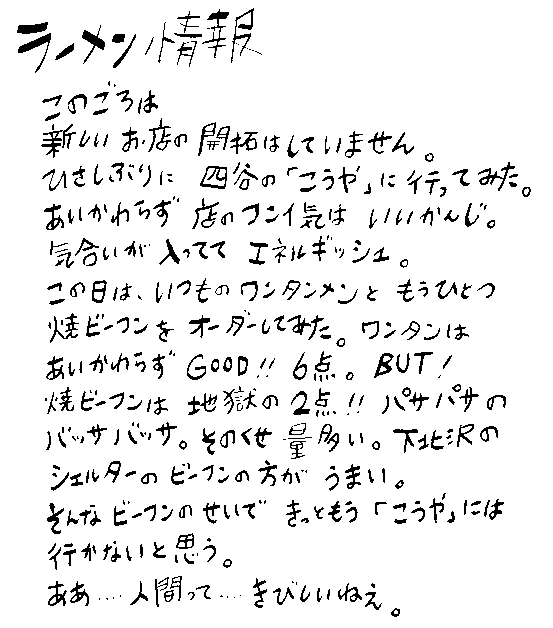 ラーメン情報
このごろは
新しいお店の開拓はしていません。
ひさしぶりに 四谷の「こうや」に行ってみた。
あいかわらず 店のフンイ気は いいかんじ。
気合いが 入ってて エネルギッシュ。
この日は、いつものワンタンメンと もうひとつ
焼ビーフンを オーダーしてみた。ワンタンは
あいかわらず GOOD!! 6点。BUT!
焼ビーフンは 地獄の2点!! パサパサの
バッサバッサ。そのくせ 量多い。下北沢の
シェルターのビーフンの方が うまい。
そんなビーフンのせいで きっともう「こうや」には
行かないと思う。
ああ…‥人間って…‥きびしいねえ。